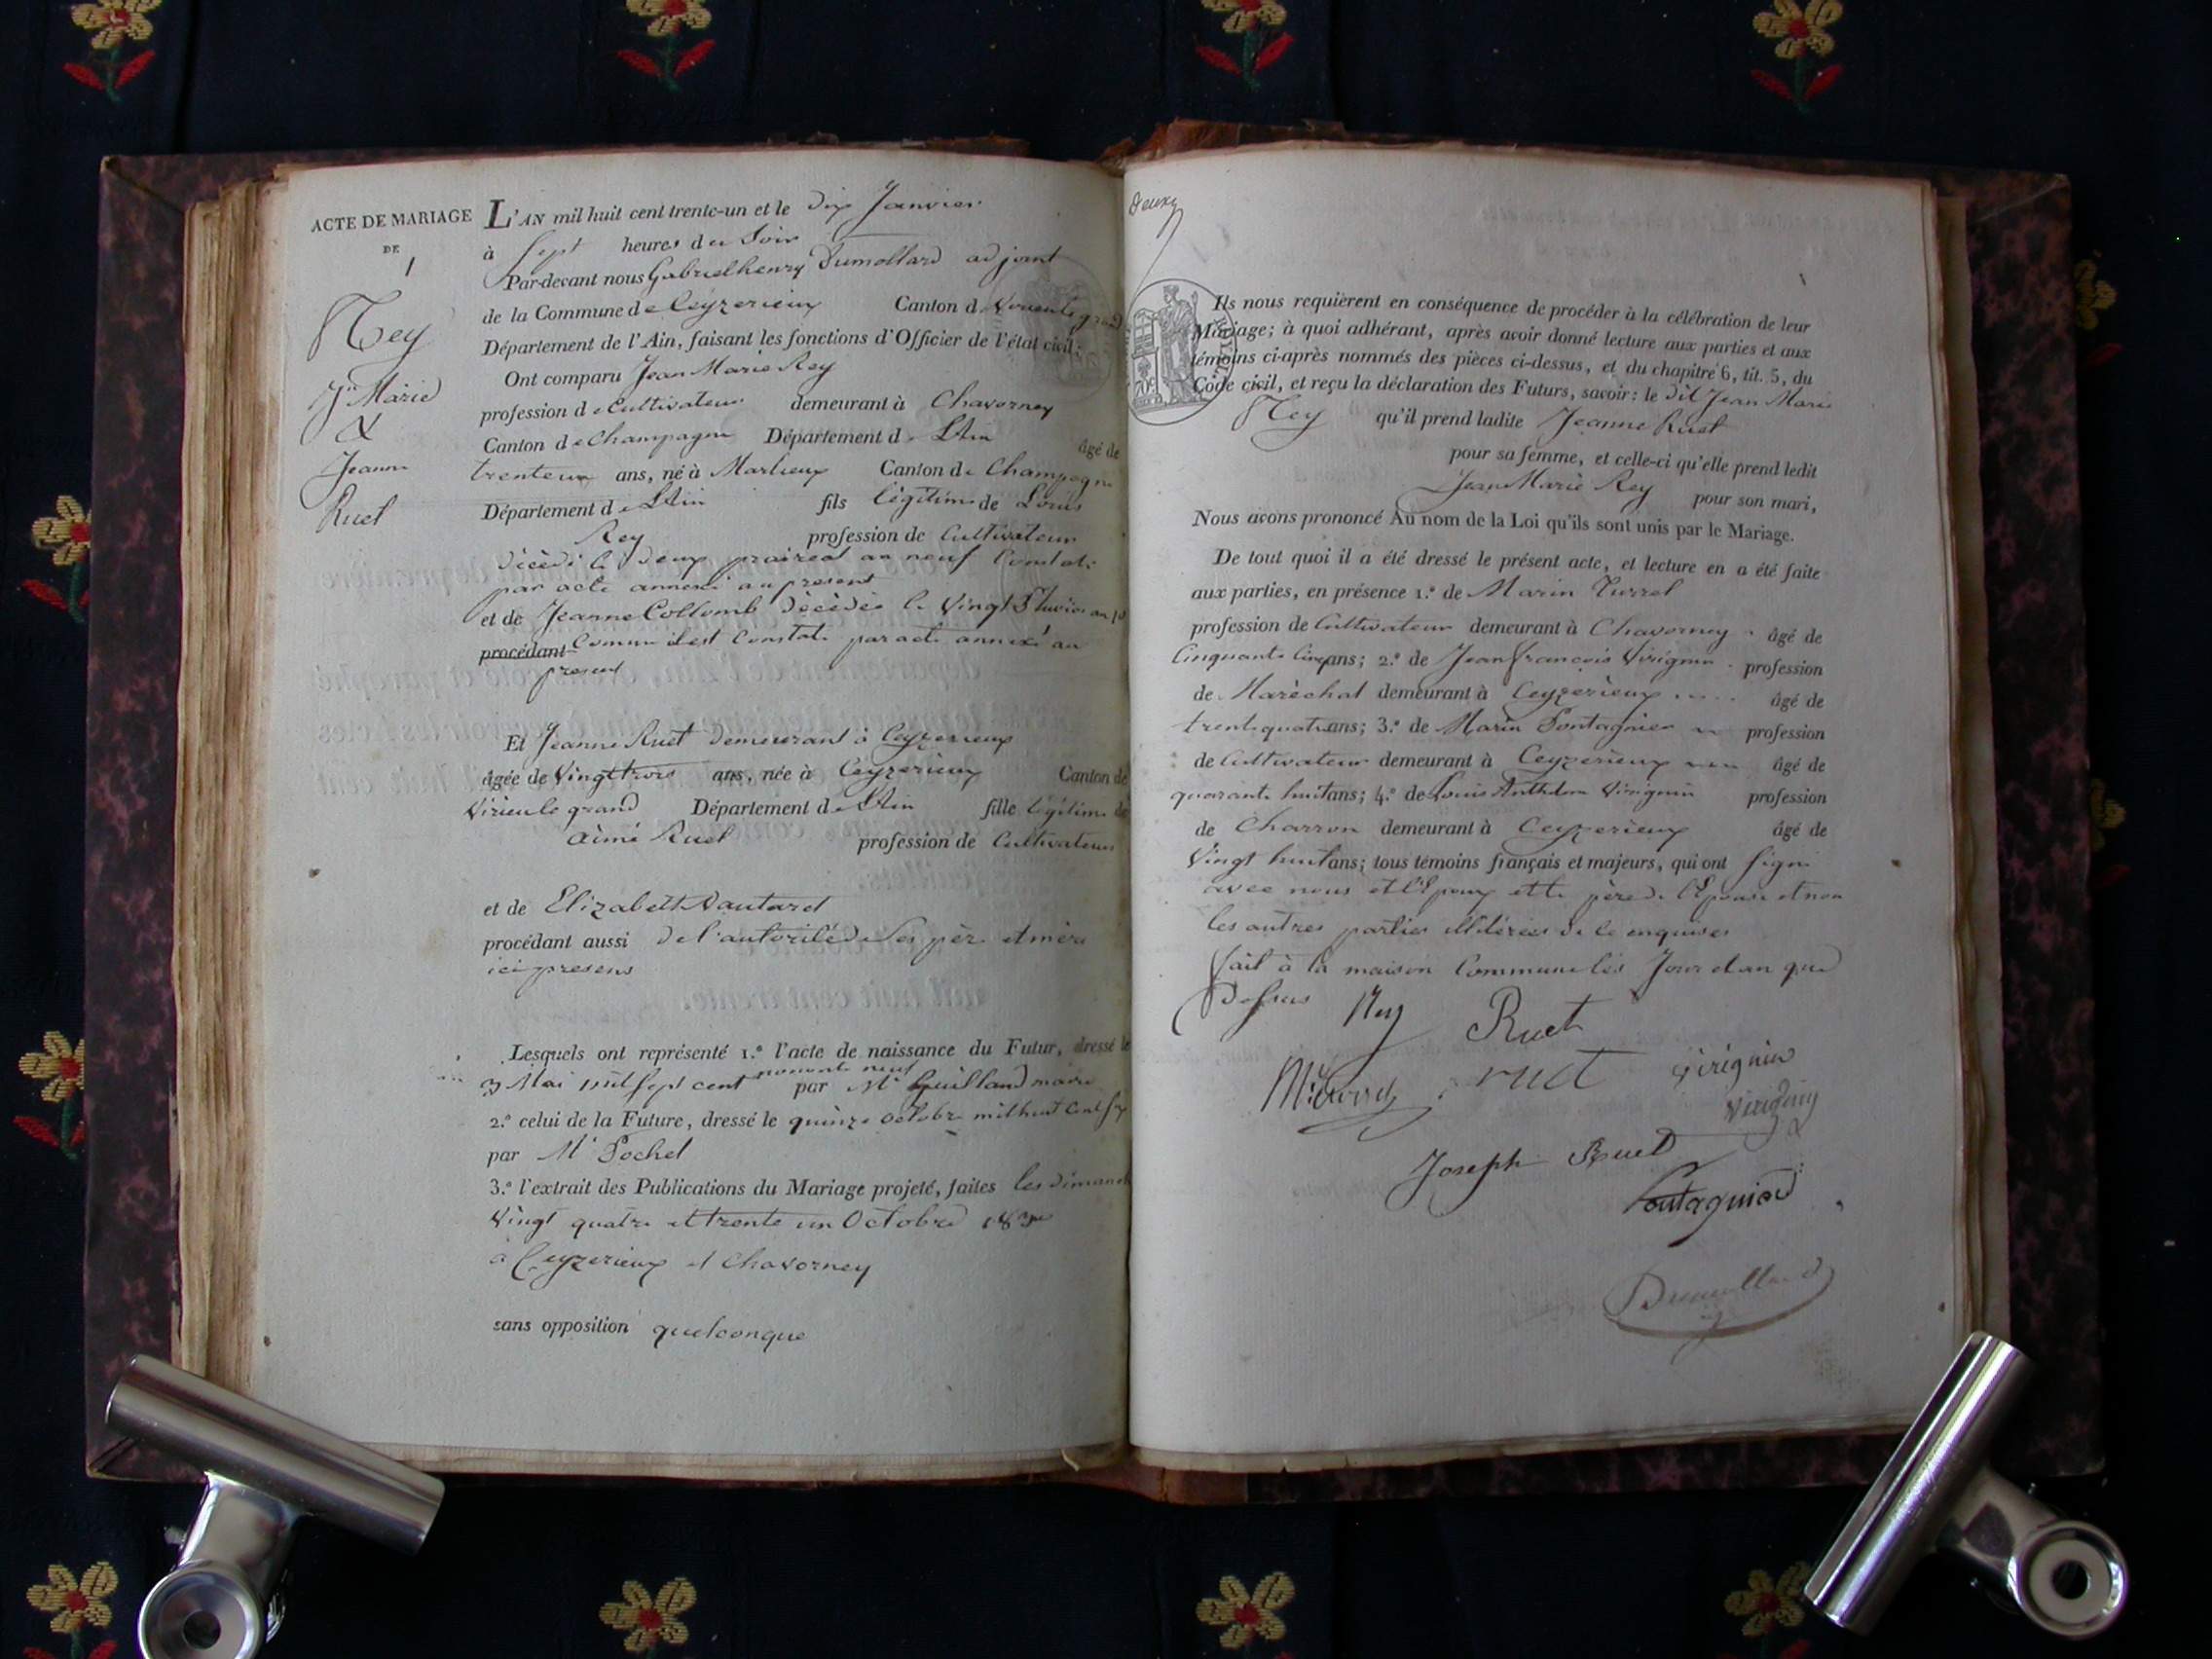 ACTE DE MARIAGE
DE
1
Rey
Jn Marie
&
Jeanne
Ruet
L'AN mil huit cent trente-un et le dix Janvier
à sept heures du Soir
Par-devant nous Gabriel henry Dumollard adjoint
de la Commune de Ceyzerieux Canton de Virieu le grand
Département de l'Ain, faisant les fonctions d'Officier de l'état civil;
Ont comparu Jean Marie Rey
profession de Cultivateur demeurant à Chavorney
Canton de Champagne Département de L'Ain âgé de
trente un ans, né à Marlieux Canton de Champagne
Département de L'Ain fils légitime de Louis
Rey profession de Cultivateur
décédé le deux prairial an neuf Constaté
par acte annexé au present
et de Jeanne Collomb décédée le Vingt Pluviose an 10
procédant Comme il est Constaté par acte annexé au
present
Et Jeanne Ruet demeurant à Ceyzerieux
âgée de Vingt trois ans, née à Ceyzerieux Canton de
Virieu le grand Département de L'Ain fille légitime de
Aimé Ruet profession de Cultivateur
et de Elizabeth Nautaret
procédant aussi de l'autorité de Ses père et mère
ici presens
Lesquels ont représenté 1.º l'acte de naissance du Futur, dressé le
3 Mai mil sept cent nonante neuf par Mr Guilland maire
2.º celui de la Future, dressé le quinze octobre mil huit Cent sept
par Mr Pochet
3.º l'extrait des Publications du Mariage projeté, faites les dimanches
Vingt quatre et trente un Octobre 1830
à Ceyzerieux et Chavorney
sans opposition quelconque
deux
Ils nous requièrent en conséquence de procéder à la célébration de leur
Mariage; à quoi adhérant, après avoir donné lecture aux parties et aux
témoins ci-après nommés des pièces ci-dessus, et du chapitre 6, tit. 5, du
Code civil, et reçu la déclaration des Futurs, savoir: le dit Jean Marie
Rey qu'il prend ladite Jeanne Ruet
pour sa femme, et celle-ci qu'elle prend ledit
Jean Marie Rey pour son mari,
Nous avons prononcé Au nom de la Loi qu'ils sont unis par le Mariage.
De tout quoi il a été dressé le présent acte, et lecture en a été faite
aux parties, en présence 1.º de Marin Turrel
profession de Cultivateur demeurant à Chavorney âgé de
Cinquante Cinq ans; 2.º de Jean francois Virignin profession
de Maréchal demeurant à Ceyzerieux âgé de
trente quatre ans; 3.º de Marin Pontagnier profession
de Cultivateur demeurant à Ceyzerieux âgé de
quarante huit ans; 4.º de Louis Anthelme Virignin profession
de Charron demeurant à Ceyzerieux âgé de
Vingt huit ans; tous témoins français et majeurs, qui ont signé
avec nous et l'Epoux et le père de l'Epouse et non
les autres parties illitérées de ce enquises
fait à la maison Commune les Jour et an que
Dessus Rey Ruet
ruet virignin
virignin
Joseph Ruet
Pontagnier
Dumollard